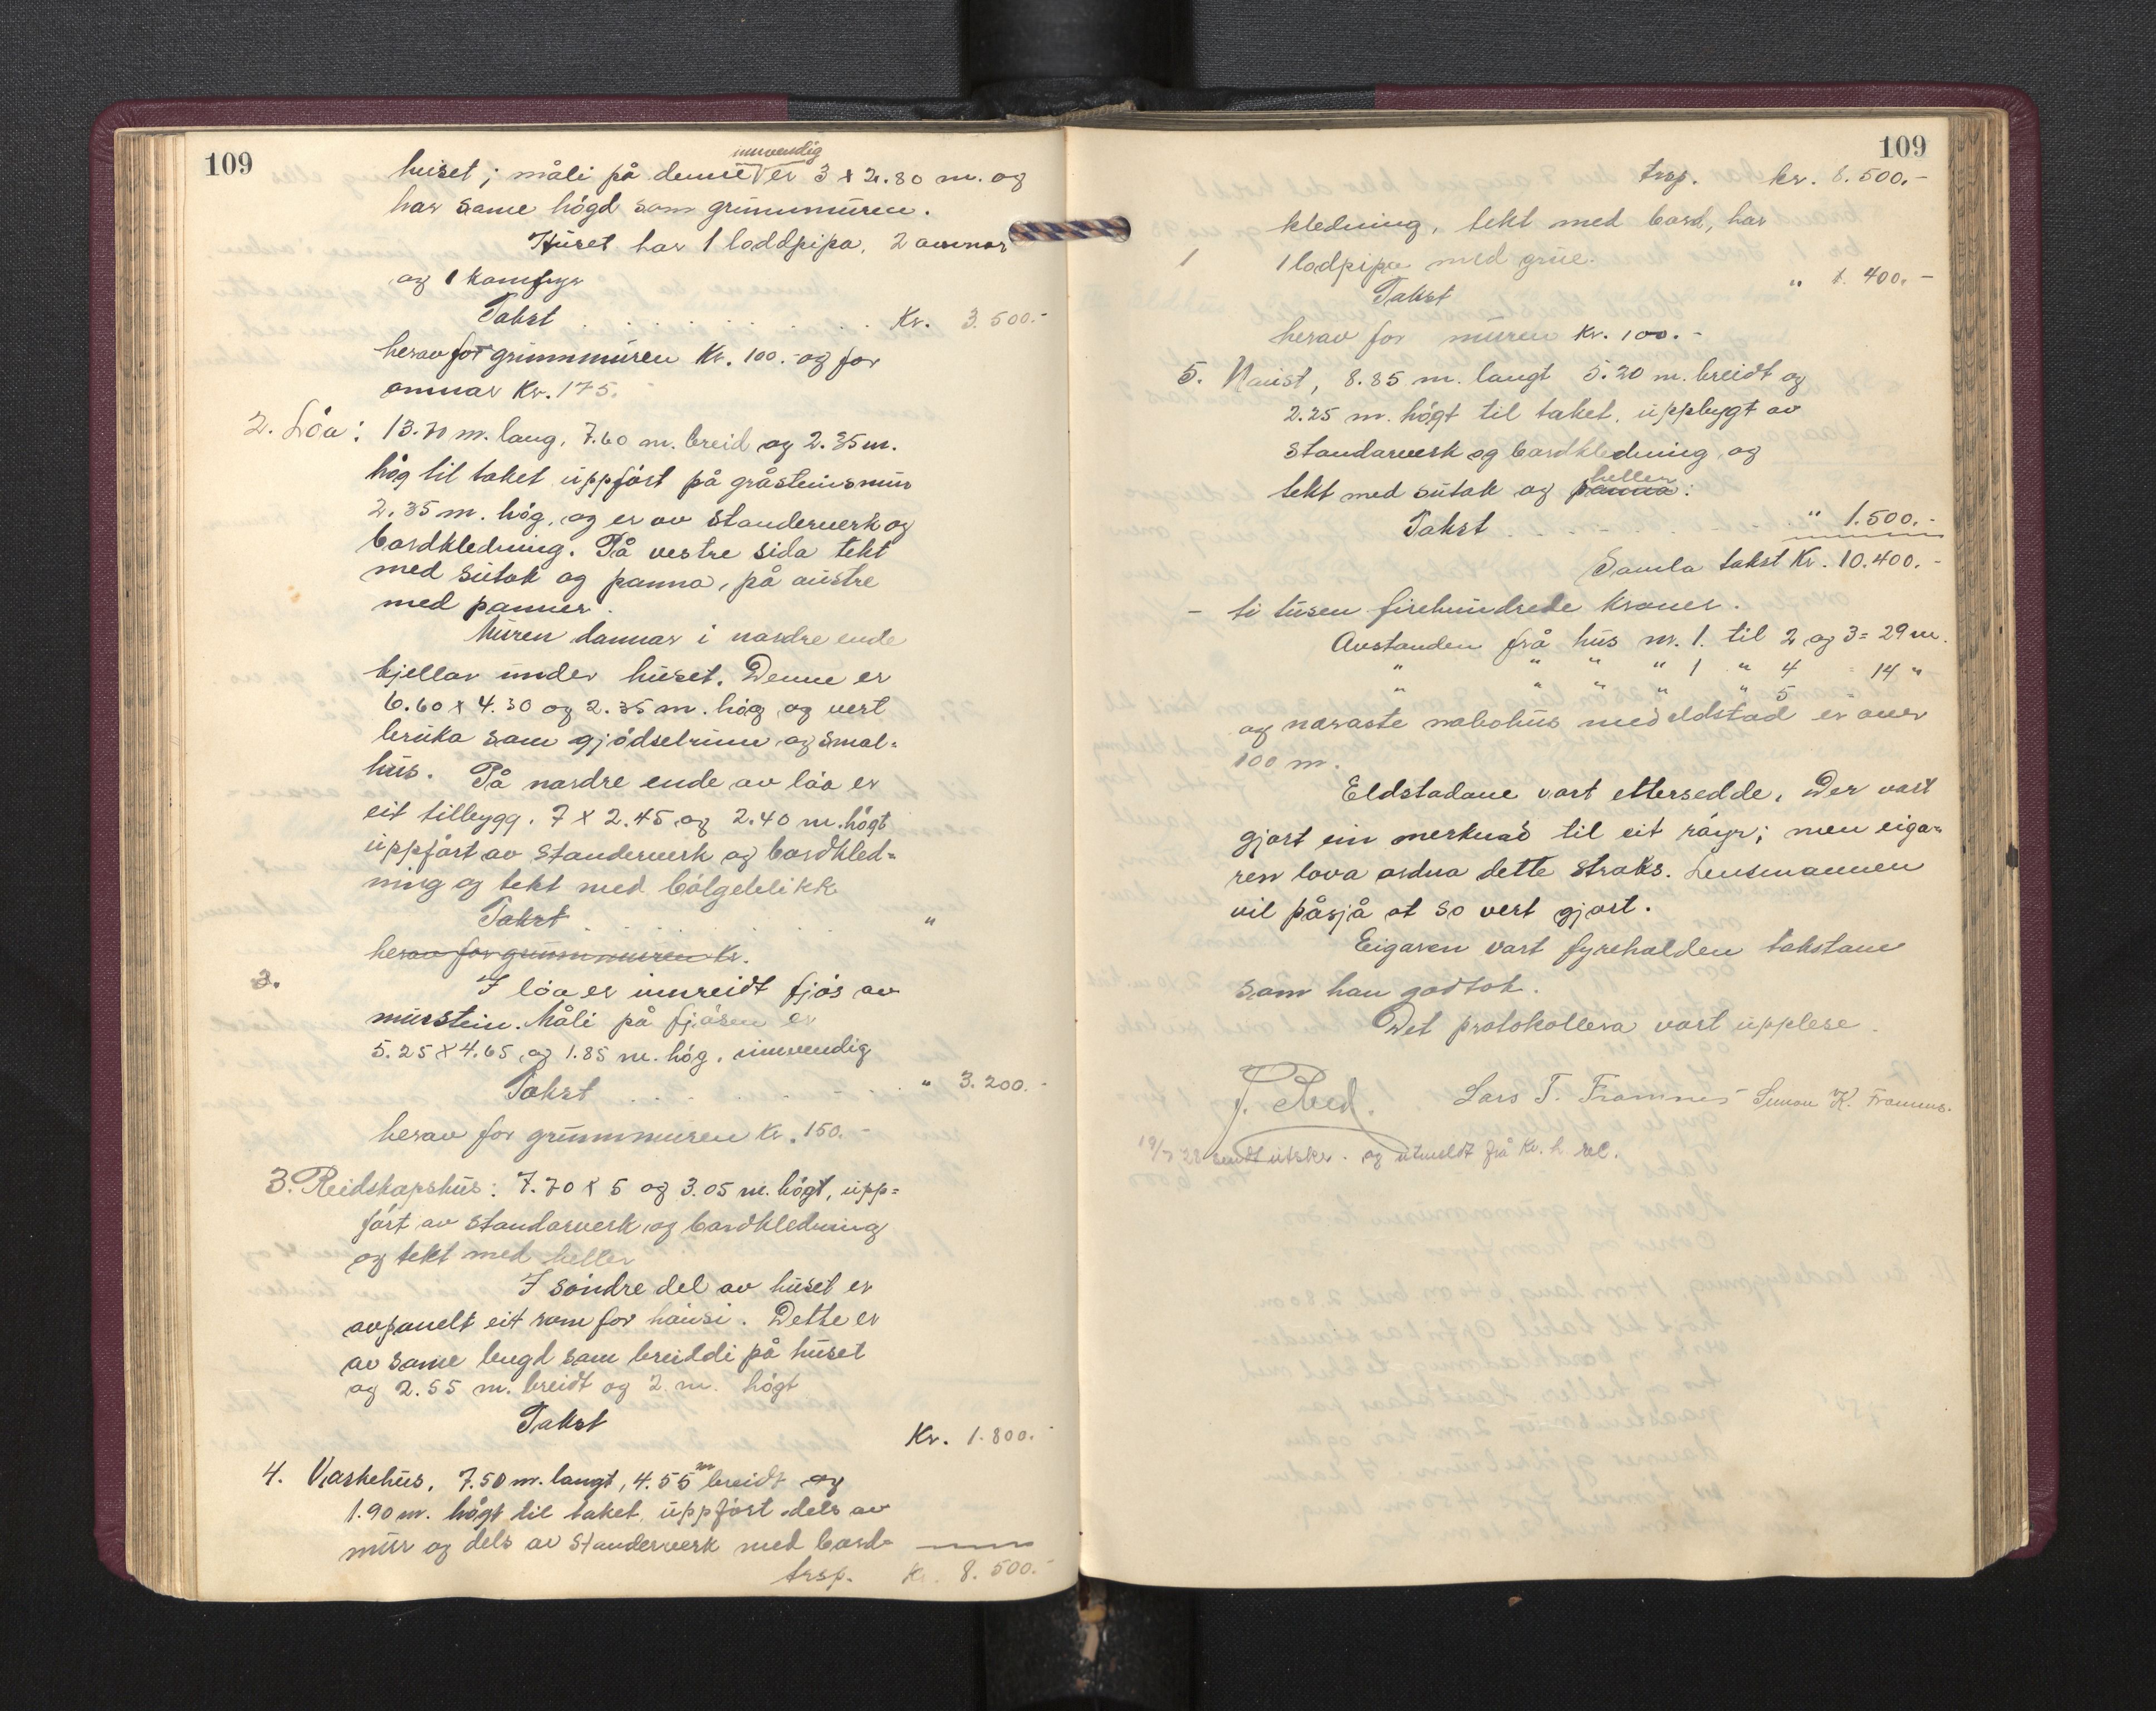 109
innvendig
huset; måli på denne er 3 x 2.80 m. og
har same högd som grunnmuren.
Huset har 1 loddpipa, 2 omnar
og 1 komfyr
Takst . . . . . . . . . Kr. 3.500.-
herav for grunnmuren Kr. 100.- og for
omnar Kr. 175.
2. Löa: 13.70 m. lang, 7.60 m. breid og 2.35 m.
hög til taket uppfört på gråsteinsmur
2.35 m. hög, og er av standerverk og
bordkledning. På vestre sida tekt
med sutak og panna, på austre
med panner.
Muren dannar i nordre ende
kjellar under huset. Denne er
6.60 x 4.30 og 2.35 m. hög og vert
bruka som gjödselrum og smal-
hus. På nordre ende av löa er
eit tilbygg. 7 x 2.45 og 2.40 m. högt
uppfört av standerverk og bordkled-
ning og tekt med bölgeblikk
Takst . . . . . . . "
herav for grunnmuren Kr.
3. I löa er innreidt fjös av
murstein. Måli på fjösen er
5.25 x 4.65 og 1.85 m. hög, innvendig
Takst . . . . . . . " 3.200.-
herav for grunnmuren Kr. 150.-
3. Reidskapshus: 7.70 x 5 og 3.05 m. högt, upp-
fört av standarverk og bordkledning
og tekt med heller
I söndre del av huset er
avpanelt eit rom for hausi. Dette er
av same lengd som breiddi på huset
og 2.55 m. breidt og 2 m. högt
Takst Kr. 1.800.-
4. Vaskehus, 7.50 m. langt, 4.55 m breidt og
1.90 m. högt til taket, uppfört dels av
mur og dels av standerverk med bord-
trsp. Kr. 8.500.-
109
trsp. kr. 8.500.-
kledning, tekt med bord, har
1 1 lodpipe med grue.
Takst " 400.-
herav for muren Kr. 100.-
5. Naust, 8.85 m. langt 5.20 m. breidt og
2.25 m. högt til taket, uppbygt av
standarverk og bordkledning og
heller
tekt med sutak og panna:
Takst . . . . . . " 1.500.-
Samla takst Kr. 10.400.-
- ti tusen firehundrede kroner.
Avstanden frå hus nr. 1. til 2 og 3 = 29 m.
" " " " 1 " 4 = 14 "
" " " " " 5 =
og næraste nabohus med eldstad er over
100 m.
Eldstadane vart ettersedde. Der vart
gjort ein merknad til eit röyr; men eiga-
ren lova ordna dette straks. Lensmannen
vil påsjå at so vert gjort.
Eigaren vart fyrehalden takstane
som han godtok.
Det protokollera vart upplese.
Lars T. Framnes Simon K. Framnes.
sendt utskr. og utmeldt frå Kr. h.